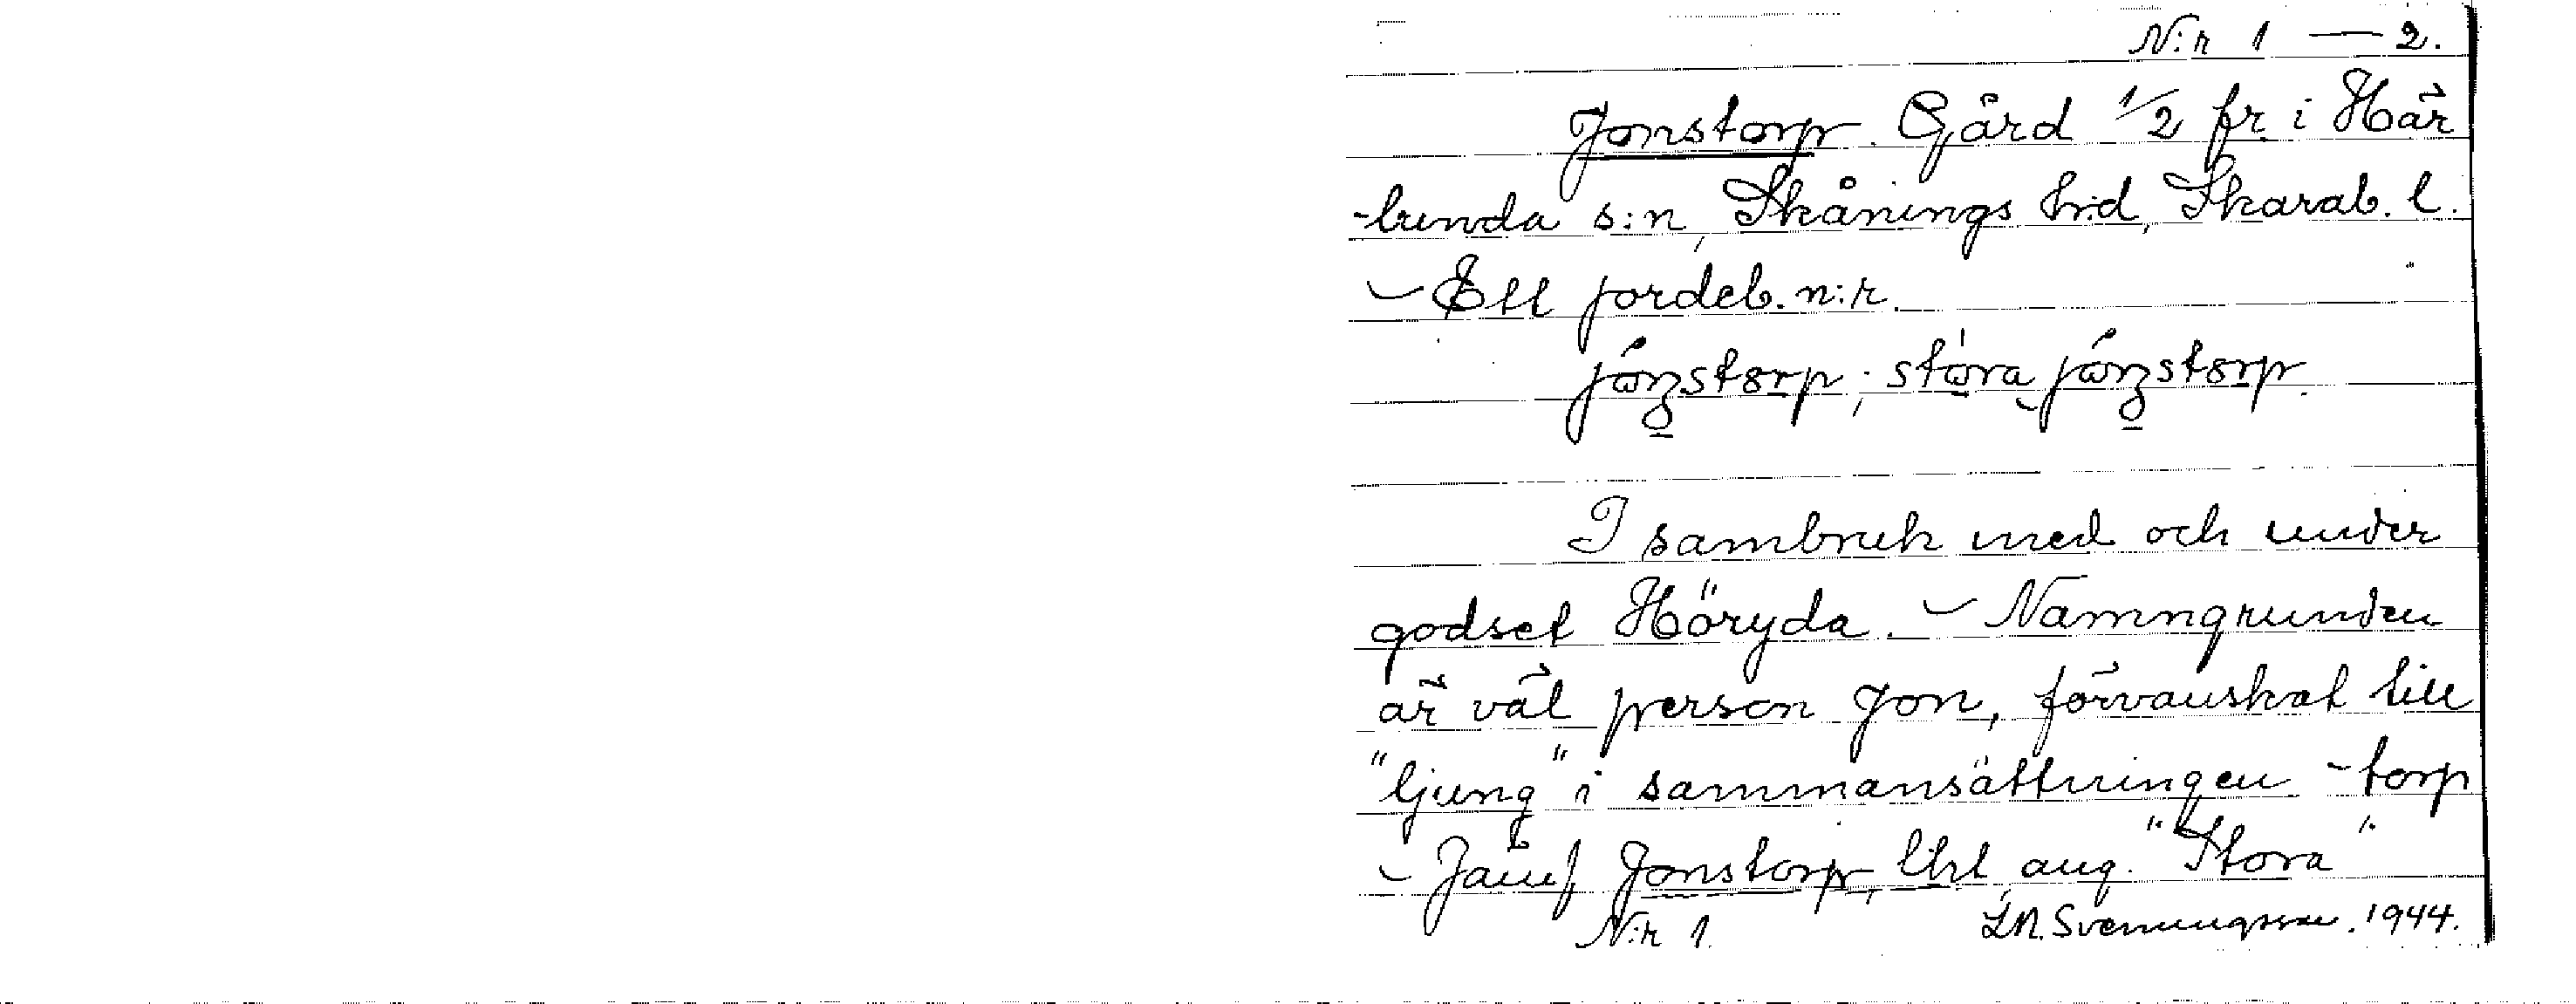 N:r 1 — 2.
Jonstorp. Gård 1/2 fr. i Här
-lunda s:n, Skånings h:d, Skarab. l.
– Ett jordeb. n:r.
I sambruk med och under
godset Höryda. – Namngrunden
är väl person Jon, förvanskat till
"ljung" i sammansättningen -torp
– Jämf Jonstorp, Lht, ang. "Stora"
N:r 1. Svenungsson. 1944.